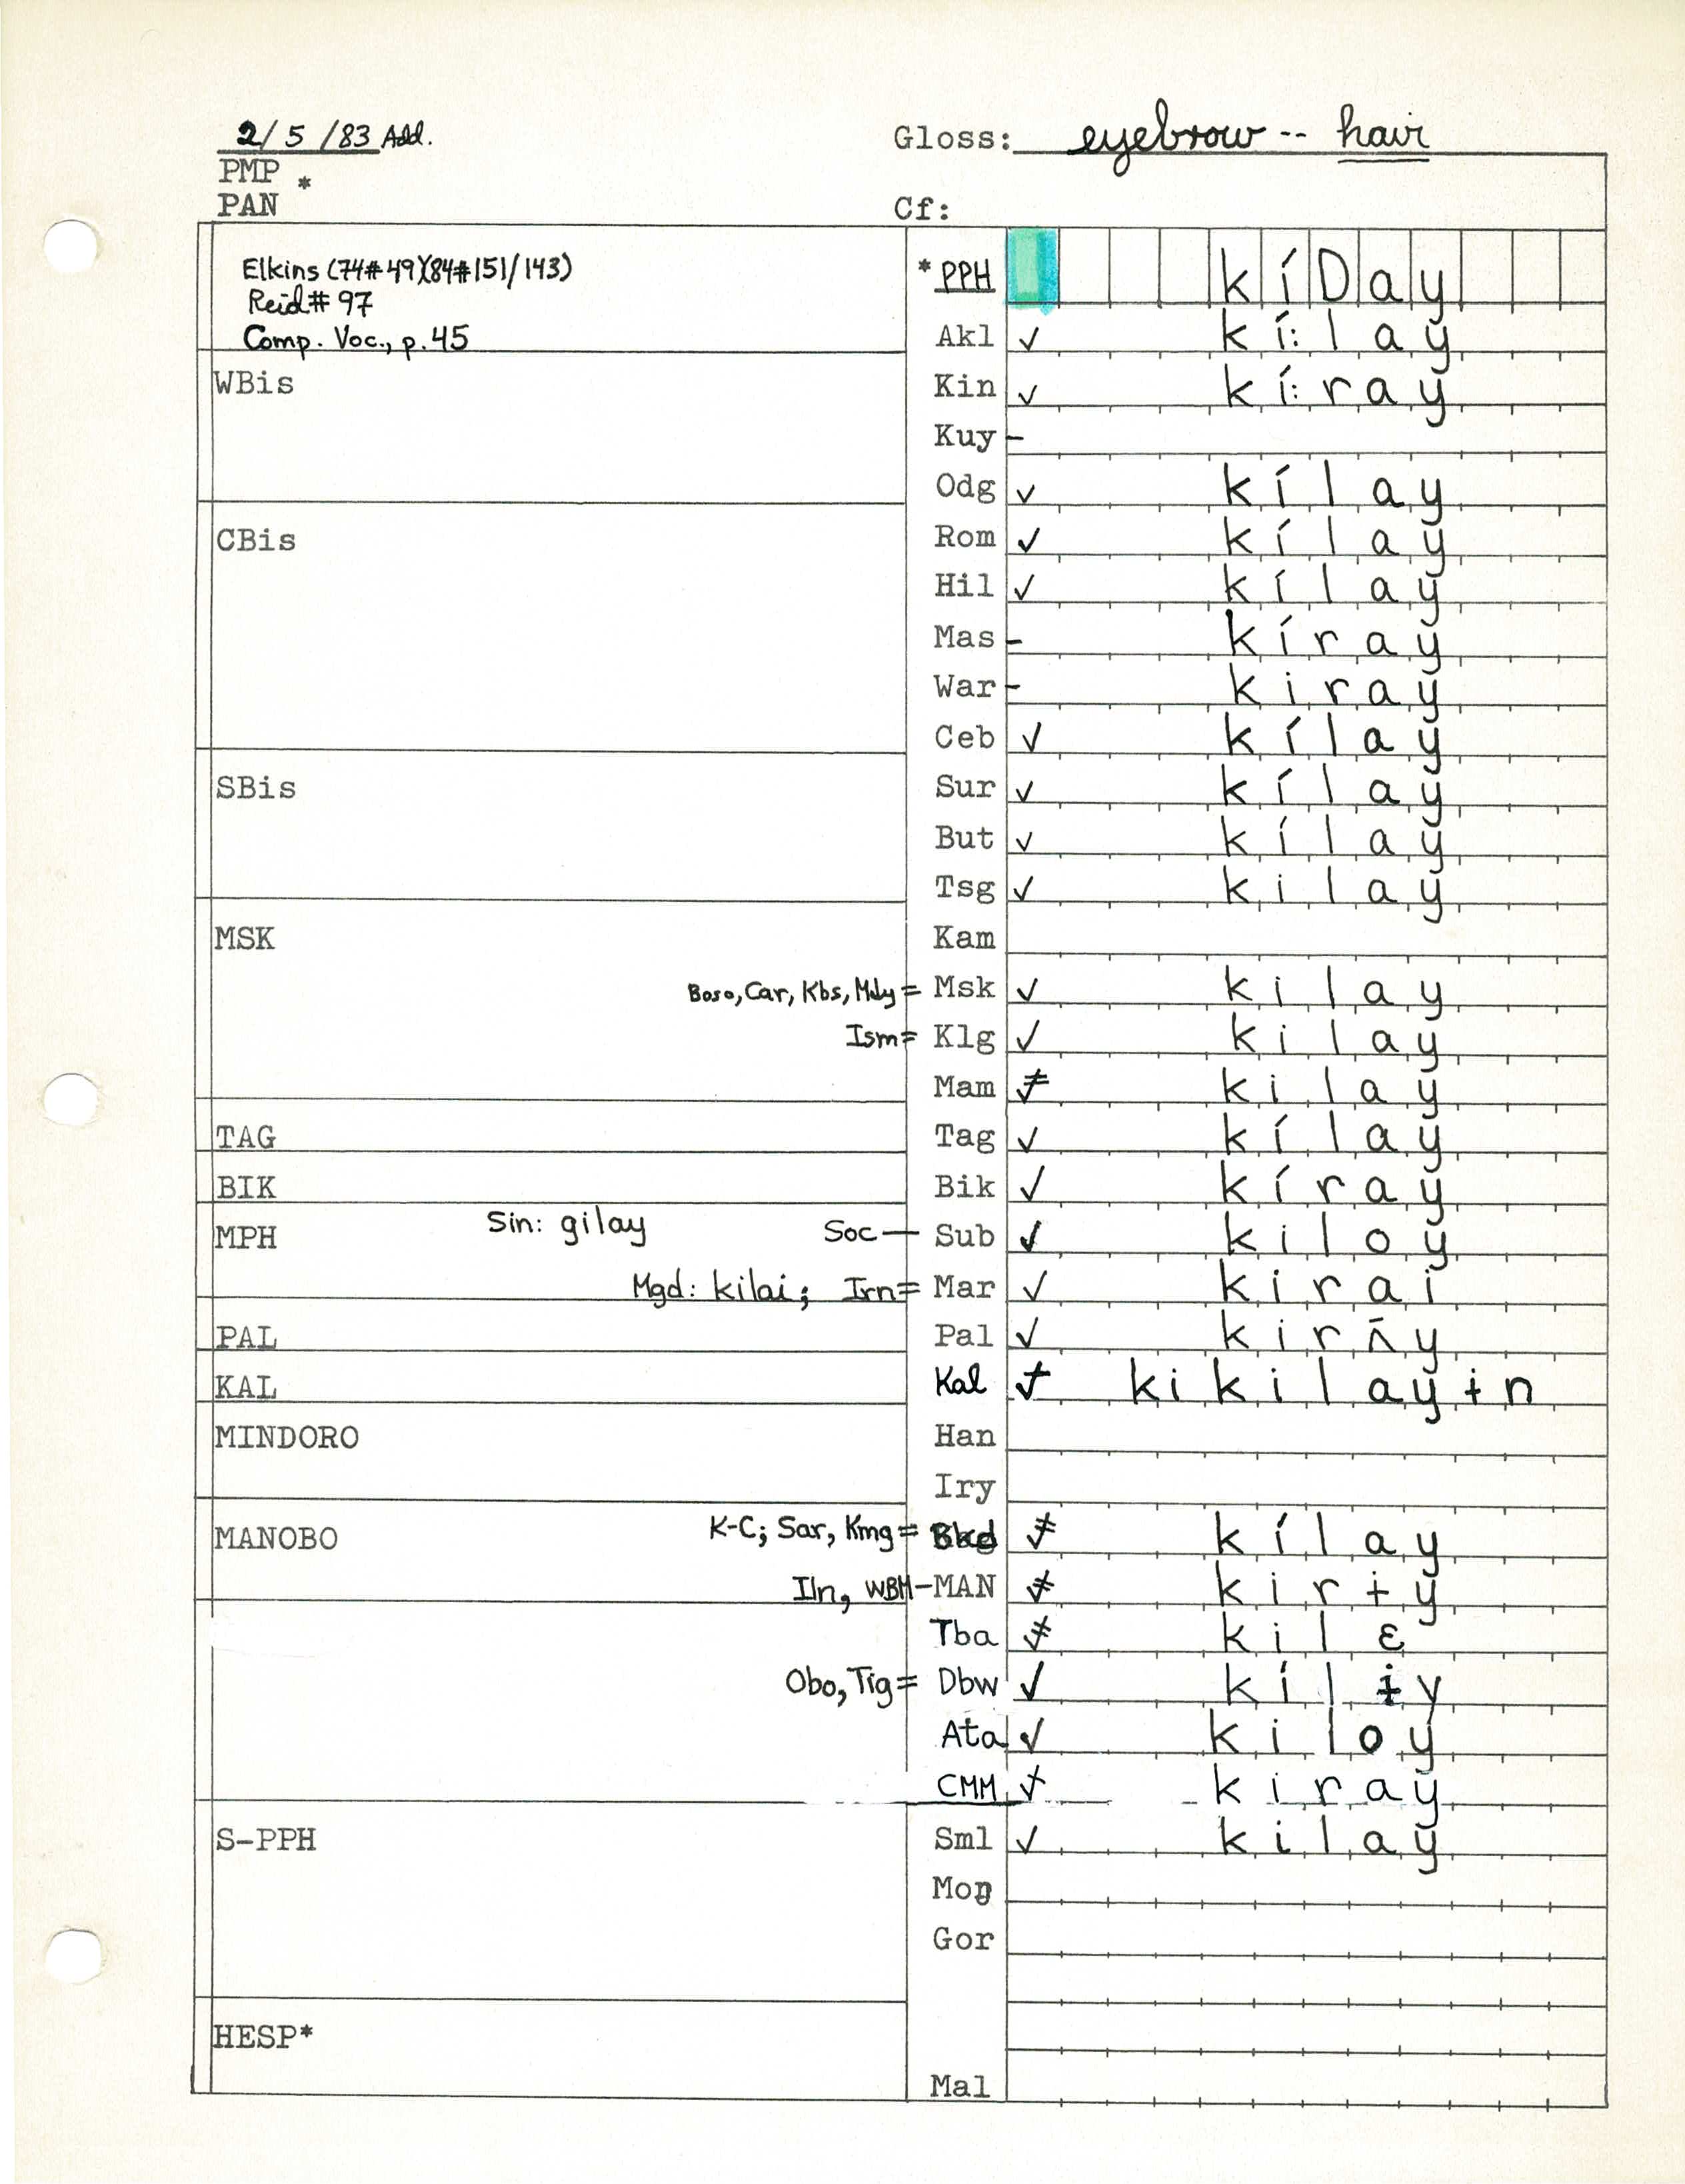 2/5/83 Add. Gloss: eyebrow -- hair
PMP *
PAN Cf:
Elkins (74#49)(84#151/143) *PPH kíDay
Reid# 97
Comp. Voc., p.45 Akl ✓ kí:lay
WBis Kin ✓ kí:ray
Kuy –
Odg ✓ kílay
CBis Rom ✓ kílay
Hil ✓ kílay
Mas – kíray
War – kiray
Ceb ✓ kílay
SBis Sur ✓ kílay
But ✓ kílay
Tsg ✓ kilay
MSK Kam
Boso, Car, Kbs, Mdy = Msk ✓ kilay
Ism = Klg ✓ kilay
Mam ≠ kilay
TAG Tag ✓ kílay
BIK Bik ✓ kíray
MPH Sin: gilay Soc — Sub ✓ kiloy
Mgd: kilai; Irn = Mar ✓ kirai
PAL Pal ✓ kirʌ́y
KAL Kal ✓ kikilayɨn
MINDORO Han
Iry
MANOBO K-C; Sar, Kmg = Bkd ≠ kílay
Iln, WBM – MAN ≠ kirɨy
Tba ≠ kilɛ
Obo, Tig = Dbw ✓ kílɨy
Ata ✓ kiloy
CMM ✓ kiray
S-PPH Sml ✓ kilay
Mog
Gor
HESP*
Mal